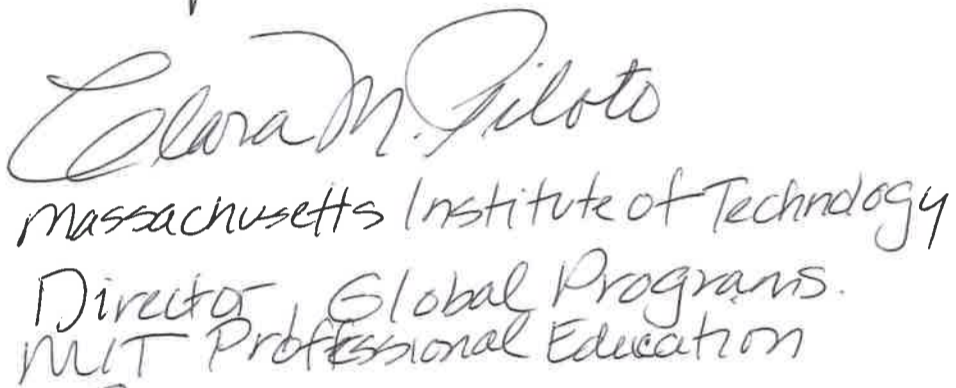 Clara M. Piloto
Massachusetts Institute of Technology
Director, Global Programs.
MIT Professional Education